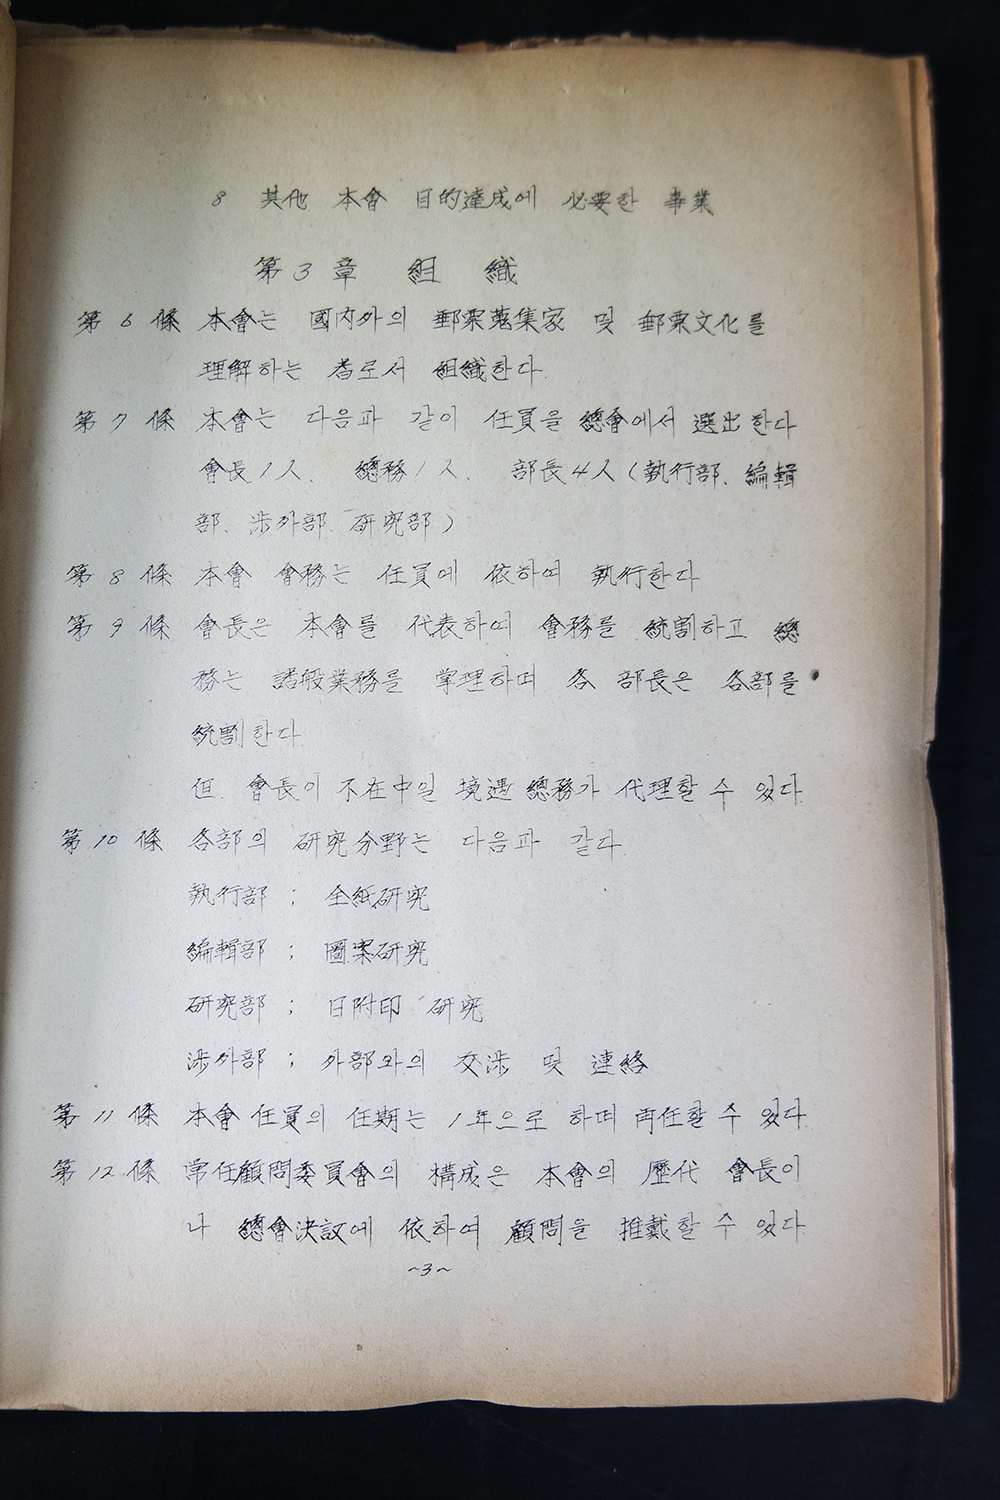 8 其他 本會 目的達成에 必要한 事業
第3章 組 織
第 6 條 本會는 國內外의 郵票蒐集家 및 郵票文化를
理解하는 者로서 組織한다.
第 7 條 本會는 다음과 같이 任員을 總會에서 選出한다
會長1人. 總務1人. 部長4人(執行部. 編輯
部. 涉外部. 硏究部)
第 8 條 本會 會務는 任員에 依하여 執行한다
第 9 條 會長은 本會를 代表하여 會務를 統割하고 總
務는 諸般業務를 掌理하며 各 部長은 各部를
統割한다.
但. 會長이 不在中일 境遇 總務가 代理할 수 있다.
第 10 條 各部의 硏究分野는 다음과 같다.
執行部 ; 全紙硏究
編輯部 ; 圖案硏究
硏究部 ; 日附印 硏究
涉外部 ; 外部와의 交涉 및 連絡
第 11 條 本會 任員의 任期는 1年으로 하며 再任할 수 있다.
第 12 條 常任顧問委員會의 構成은 本會의 歷代 會長이
나 總會決議에 依하여 顧問을 推戴할 수 있다.
~3~